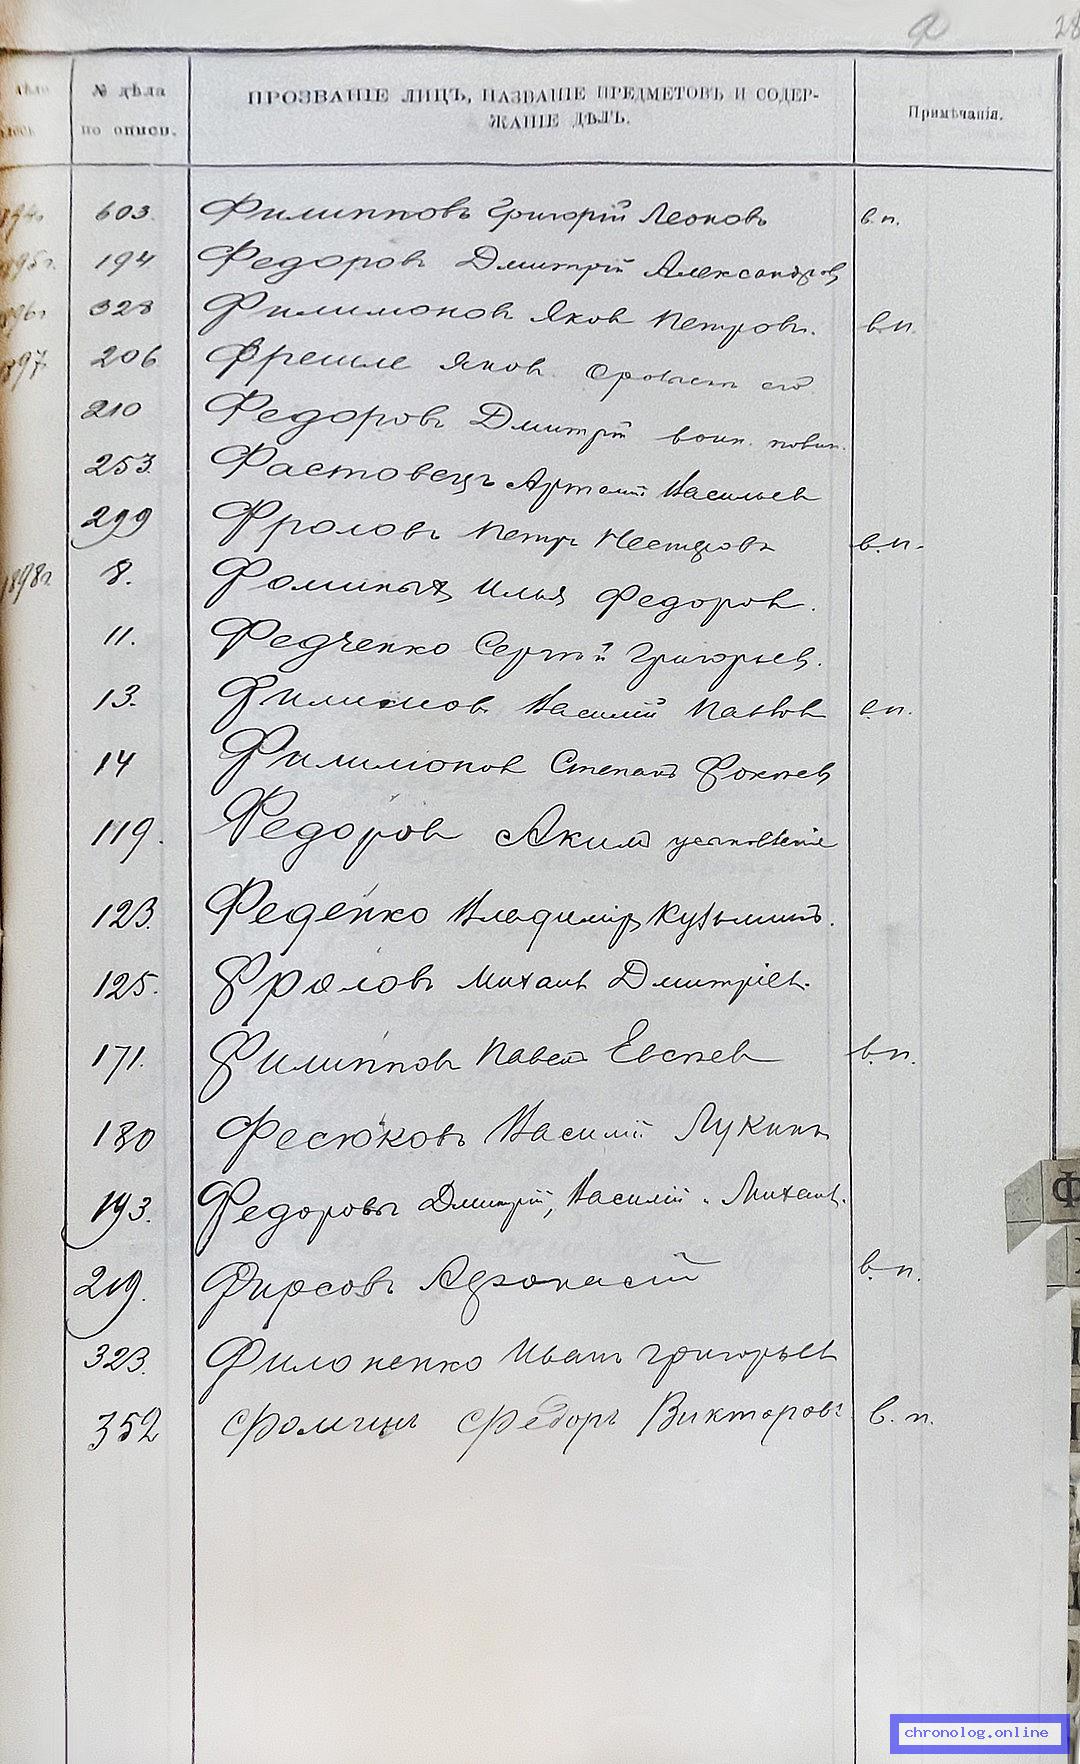 Ф 28
№ дѣла по описи.
ПРОЗВАНІЕ ЛИЦЪ, НАЗВАНІЕ ПРЕДМЕТОВЪ И СОДЕР-
ЖАНІЕ ДѢЛЪ.
Примѣчанія.
603. Филипповъ Григорій Леоновъ в.п.
1895г. 194 Федоровъ Дмитрій Александров
1896г 328 Филимоновъ Яков Петровъ. в.п.
1897 206 Яков
210 Федоровъ Дмитрій воин. повин.
253. Фастовецъ Артемій Васильев
299 Фроловъ Петръ Нестеровъ в.п.
1898г. 8. Фоминых Илья Федоров.
11. Федченко Сергѣй Григорьев.
13. Филимонов Василій Павлов в.п.
14 Филимонов Степанъ Фокеев
119. Федоров Акимъ усыновленіе
123. Феденко Владимір Кузьминъ.
125. Фролов Михаил Дмитріев.
171. Филиппов Павелъ Евсеев в.п.
180 Фесюковъ Василій Лукинъ
193. Федоровы Дмитрій, Василій и Михаил.
219. Фирсовъ Афонасій в.п.
323. Филоненко Иванъ Григорьев
352 Фомицъ Федоръ Викторовъ в.п.
Ф
chronolog.online